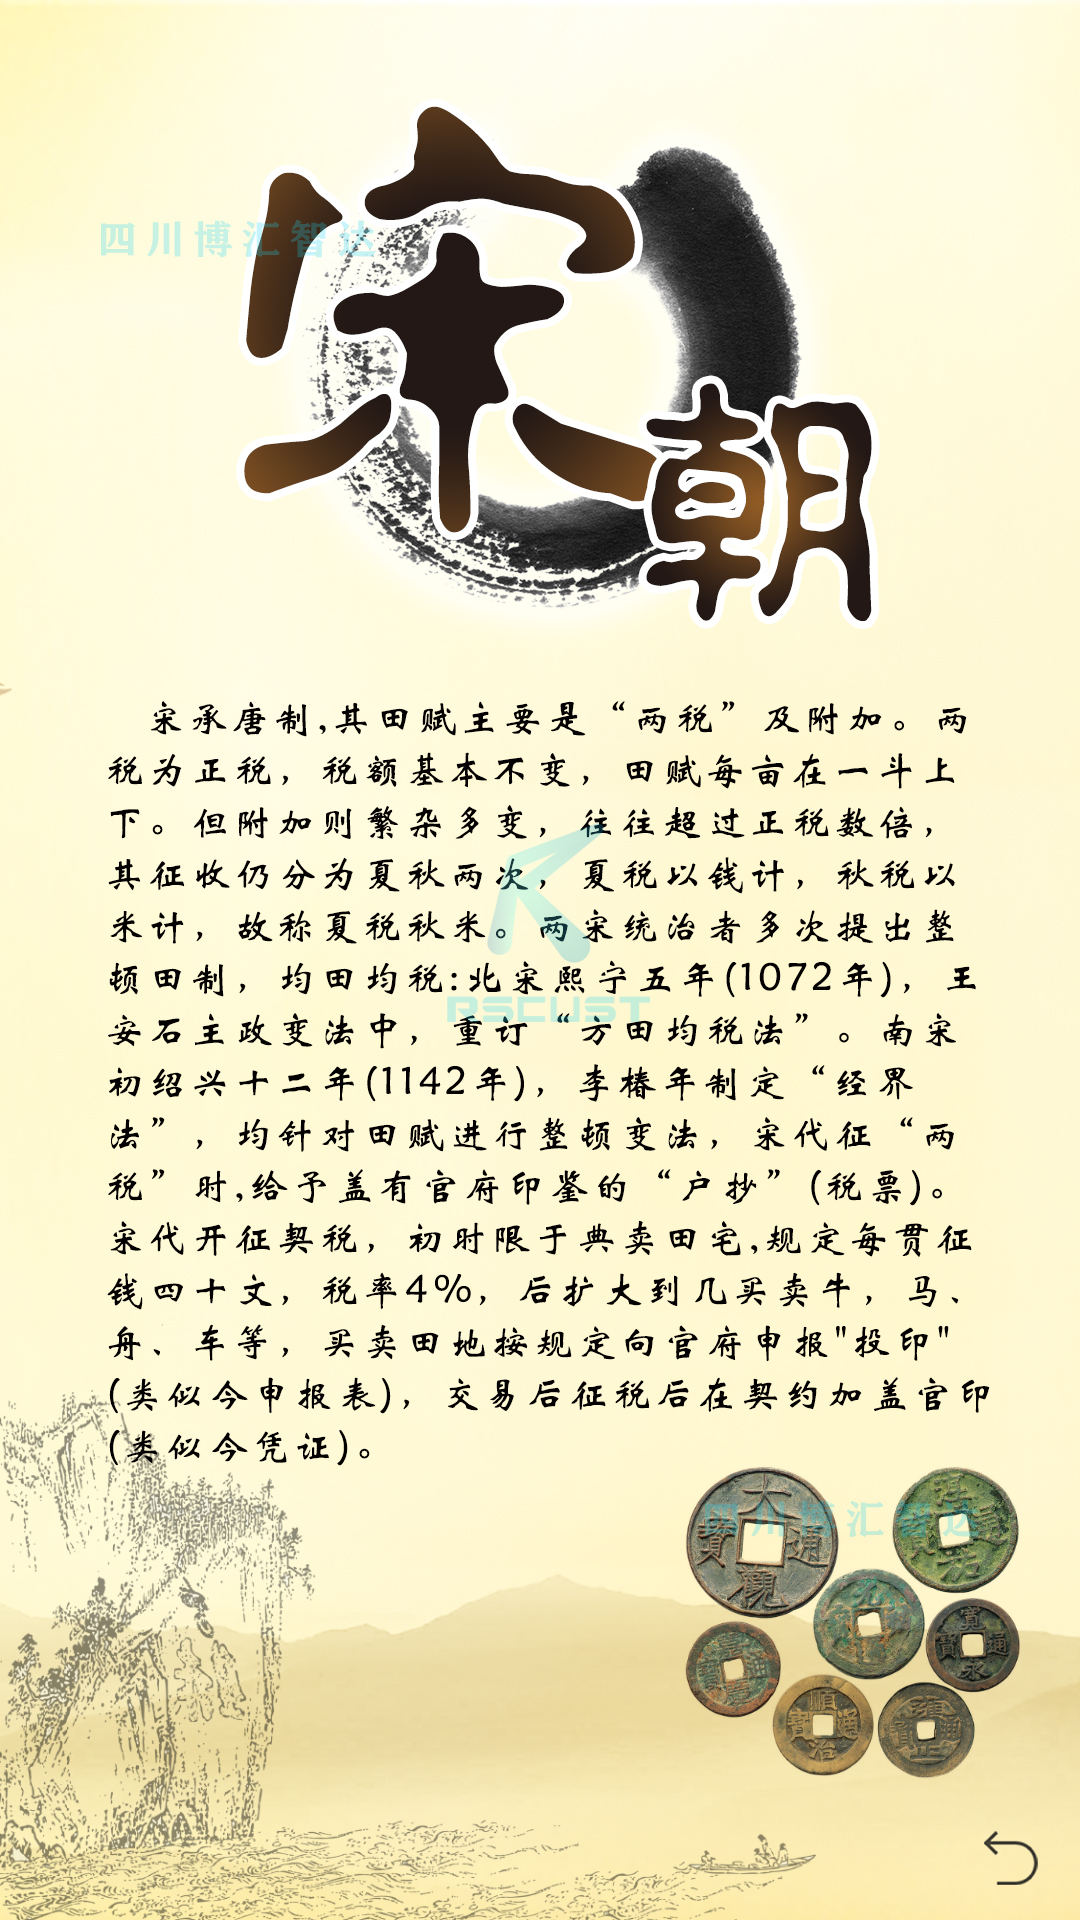 宋朝
四川博汇智达
宋承唐制,其田赋主要是“两税”及附加。两
税为正税，税额基本不变，田赋每亩在一斗上
下。但附加则繁杂多变，往往超过正税数倍，
其征收仍分为夏秋两次，夏税以钱计，秋税以
米计，故称夏税秋米。两宋统治者多次提出整
顿田制，均田均税:北宋熙宁五年(1072年)，王
安石主政变法中，重订“方田均税法”。南宋
初绍兴十二年(1142年)，李椿年制定“经界
法”，均针对田赋进行整顿变法，宋代征“两
税”时,给予盖有官府印鉴的“户抄”(税票)。
宋代开征契税，初时限于典卖田宅,规定每贯征
钱四十文，税率4%，后扩大到几买卖牛，马、
舟、车等，买卖田地按规定向官府申报"投印"
(类似今申报表)，交易后征税后在契约加盖官印
(类似今凭证)。
RSCUST
四川博汇智达
大觀通寶
寬永通寶
順治通寶
雍正通寶